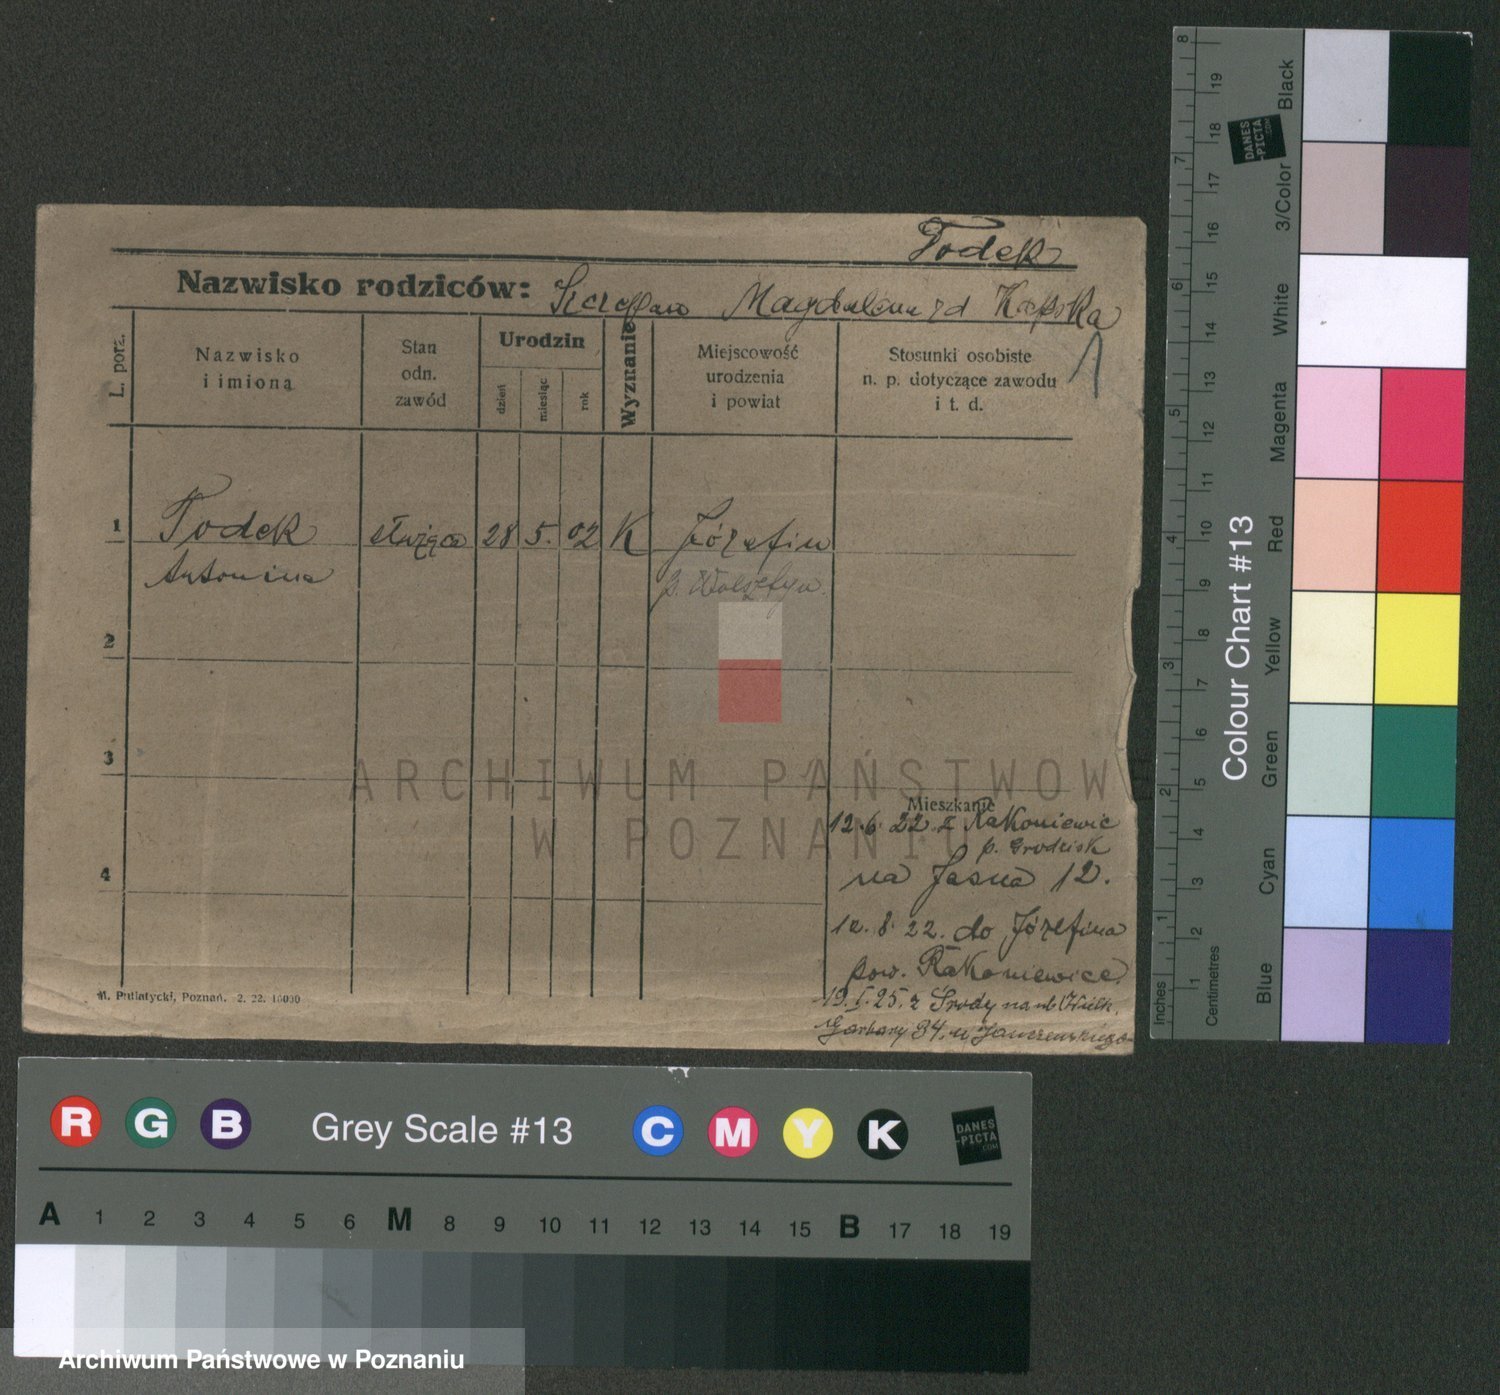 Todek
Nazwisko rodziców: Szczepan Magdalena zd Kapska
L. porz.
Nazwisko
i imiona
Stan
odn.
zawód
Urodzin
dzień
miesiąc
rok
Wyznanie
Miejscowość
urodzenia
i powiat
Stosunki osobiste
n. p. dotyczące zawodu
i t. d.
1
1 Todek służąca 28 5. 02 K Józefin
Antonina p. Wolsztyn
2
3
4
Mieszkanie
12.6.22 z Rakoniewic
p. Grodzisk
na Jasna 12.
12.8.22. do Józefina
pow. Rakoniewice
19.I.25. z Środy na ul. Wielk.
Garbary 34. u
M. Putiatycki, Poznań. 2. 22. 10000
ARCHIWUM PAŃSTWOWE
W POZNANIU
R G B Grey Scale #13 C M Y K
DANES
-PICTA
.COM
A 1 2 3 4 5 6 M 8 9 10 11 12 13 14 15 B 17 18 19
Archiwum Państwowe w Poznaniu
Colour Chart #13
DANES
-PICTA
.COM
Blue Cyan Green Yellow Red Magenta White 3/Color Black
Inches 1 2 3 4 5 6 7 8
Centimetres 1 2 3 4 5 6 7 8 9 10 11 12 13 14 15 16 17 18 19